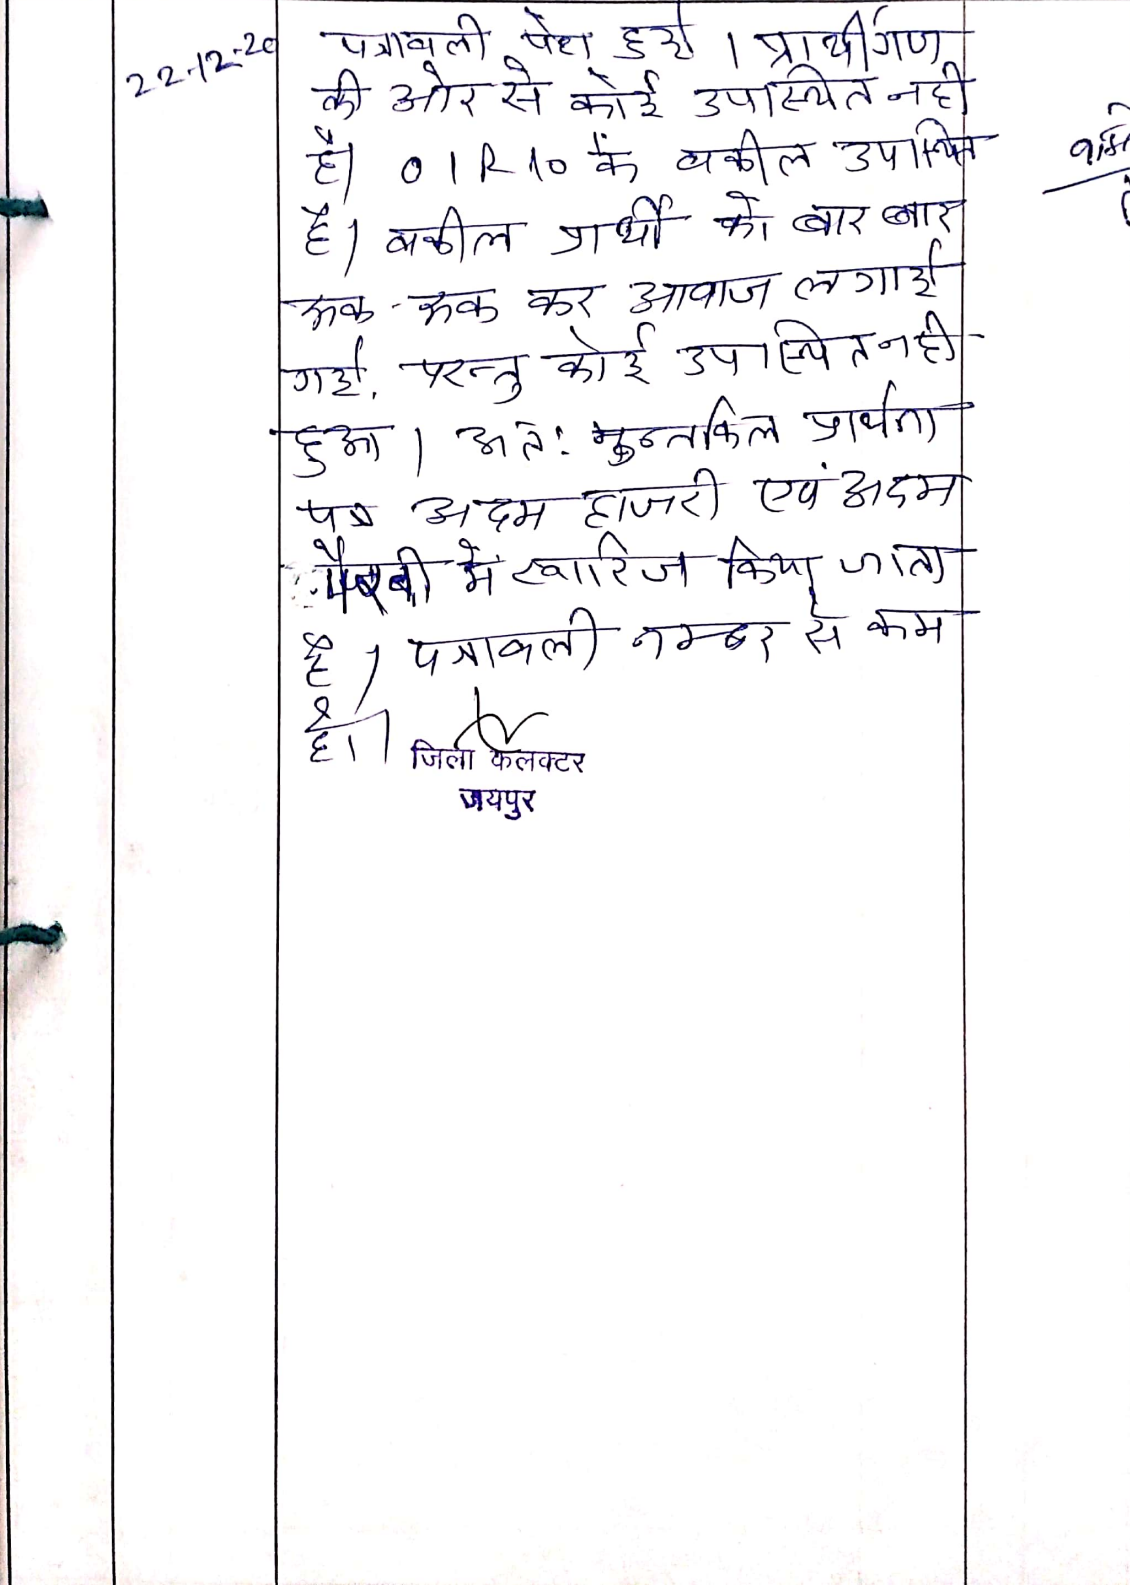 22-12-20
पत्रावली पेश हुई । प्रार्थीगण
की ओर से कोई उपस्थित नही
है। O1R10 के वकील उपस्थित
है। वकील प्रार्थी को बार बार
रूक-रूक कर आवाज लगाई
गई, परन्तु कोई उपस्थित नही
हुआ । अतः मुन्तकिल प्रार्थना
पत्र अदम हाजरी एवं अदम
पैरवी में खारिज किया जाता
है । पत्रावली नम्बर से कम
हो।
जिला कलक्टर
जयपुर